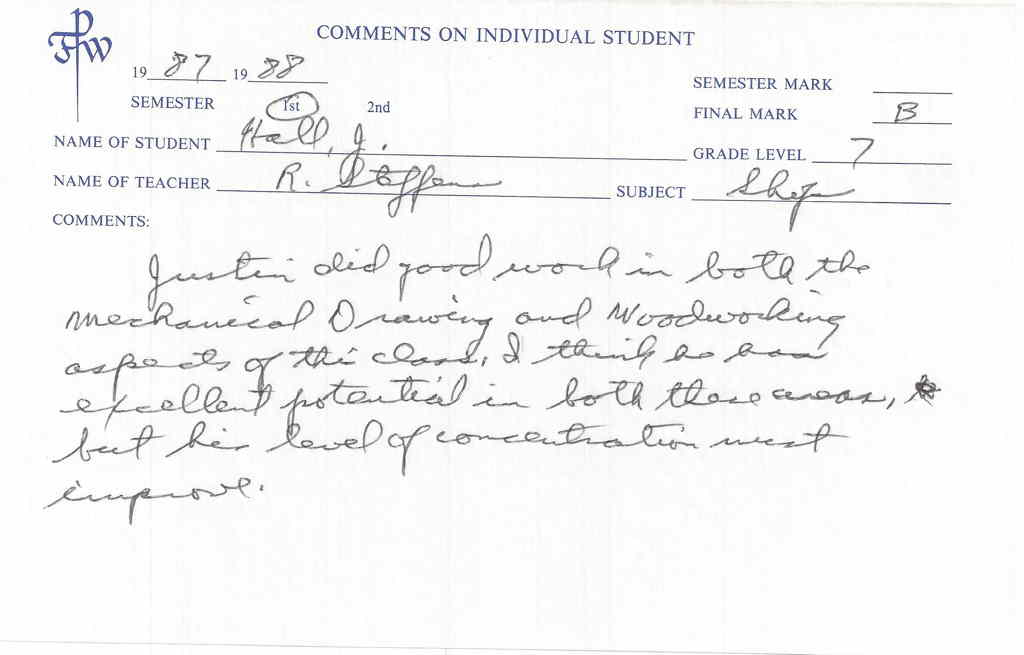 PFW
COMMENTS ON INDIVIDUAL STUDENT
19 87 19 88
SEMESTER MARK
SEMESTER 1st 2nd
FINAL MARK B
NAME OF STUDENT Hall, J.
GRADE LEVEL 7
NAME OF TEACHER R. Steffens SUBJECT Shop
COMMENTS:
Justin did good work in both the
Mechanical Drawing and Woodworking
aspects of this class. I think he has
excellent potential in both these areas,
but his level of concentration must
improve.